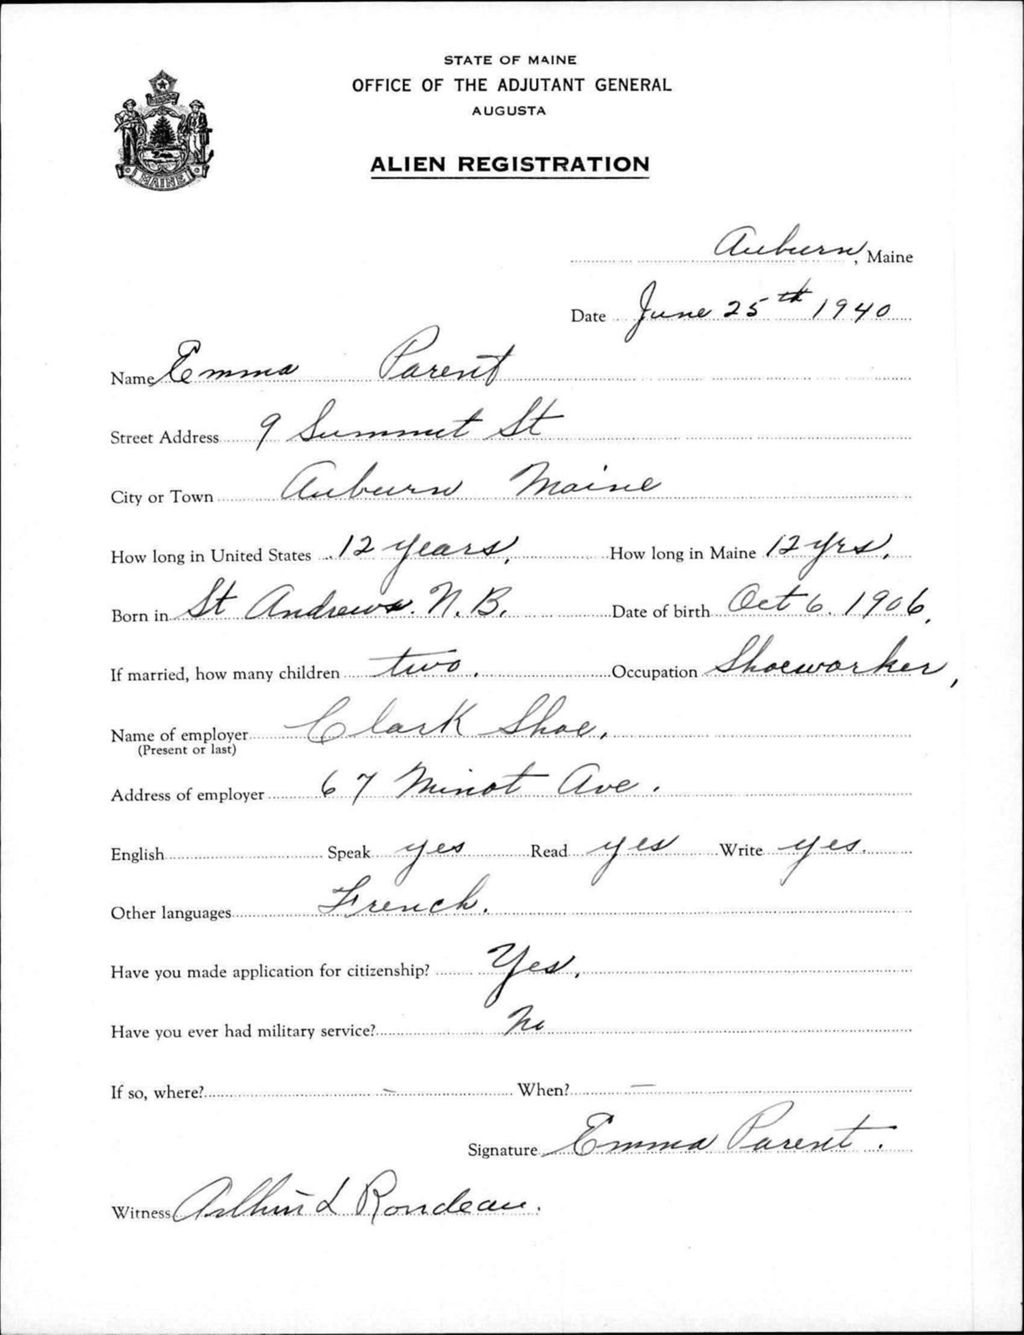 STATE OF MAINE
OFFICE OF THE ADJUTANT GENERAL
AUGUSTA
ALIEN REGISTRATION
MAINE
Auburn, Maine
Date June 25th 1940
Name Emma Parent
Street Address 9 Summit St
City or Town Auburn Maine
How long in United States 12 years, How long in Maine 12 yrs,
Born in St Andrews. N.B. Date of birth Oct 6. 1906,
If married, how many children two, Occupation Shoeworker,
Name of employer Clark Shoe,
(Present or last)
Address of employer 67 Minot Ave.
English Speak yes Read yes Write yes.
Other languages French.
Have you made application for citizenship? Yes.
Have you ever had military service? No
If so, where? — When? —
Signature Emma Parent.
Witness Arthur L Rondeau.